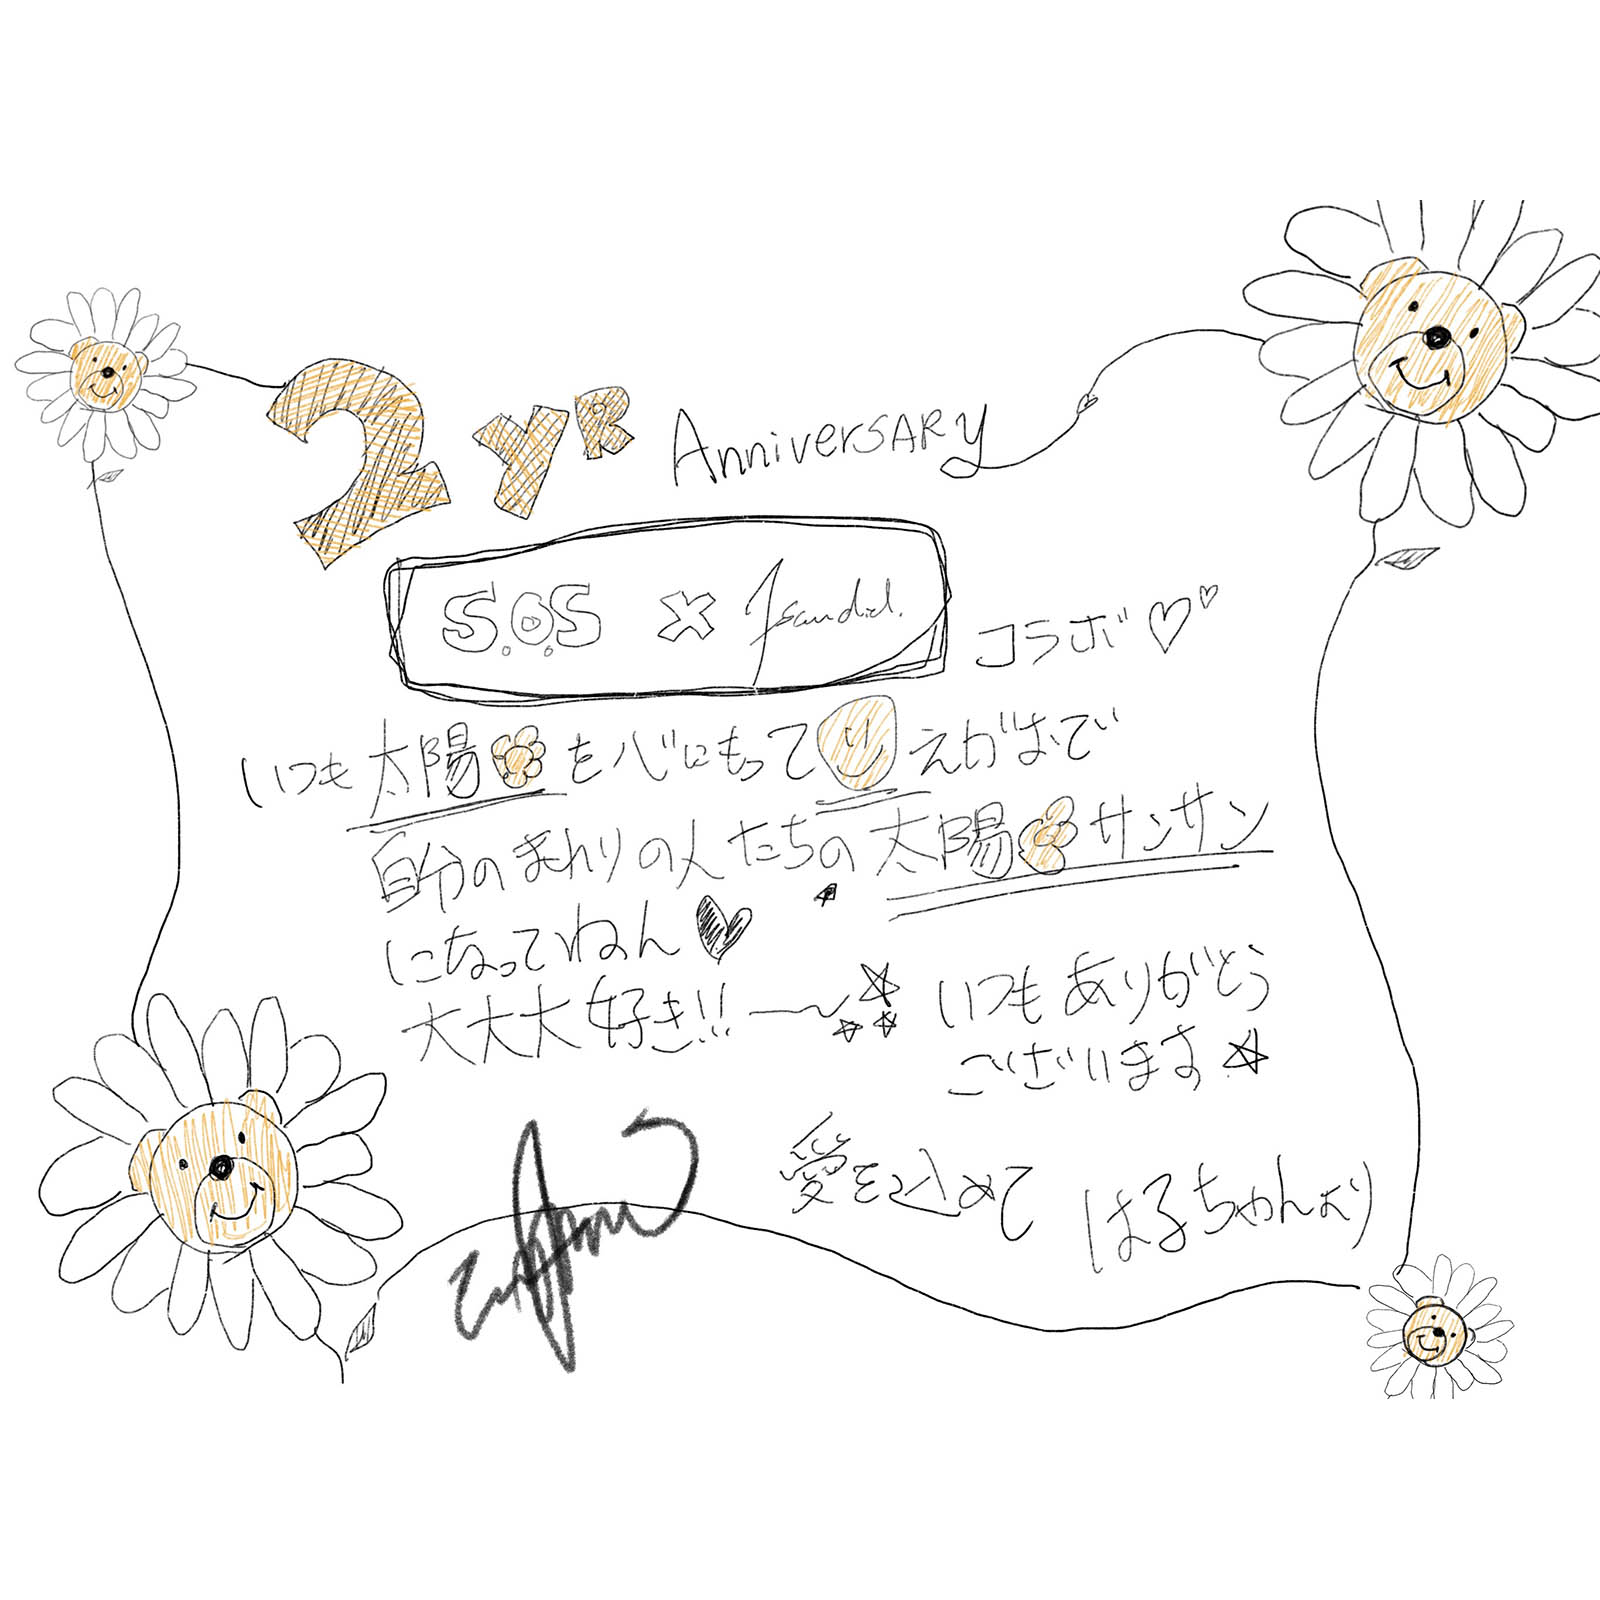 2YR Anniversary
S.O.S × Jsandid.
コラボ
いつも太陽を心にもってえがおで
自分のまわりの人たちの太陽サンサン
になってねん
大大大好き!!
いつもありがとう
ございます
愛を込めて はるちゃんより